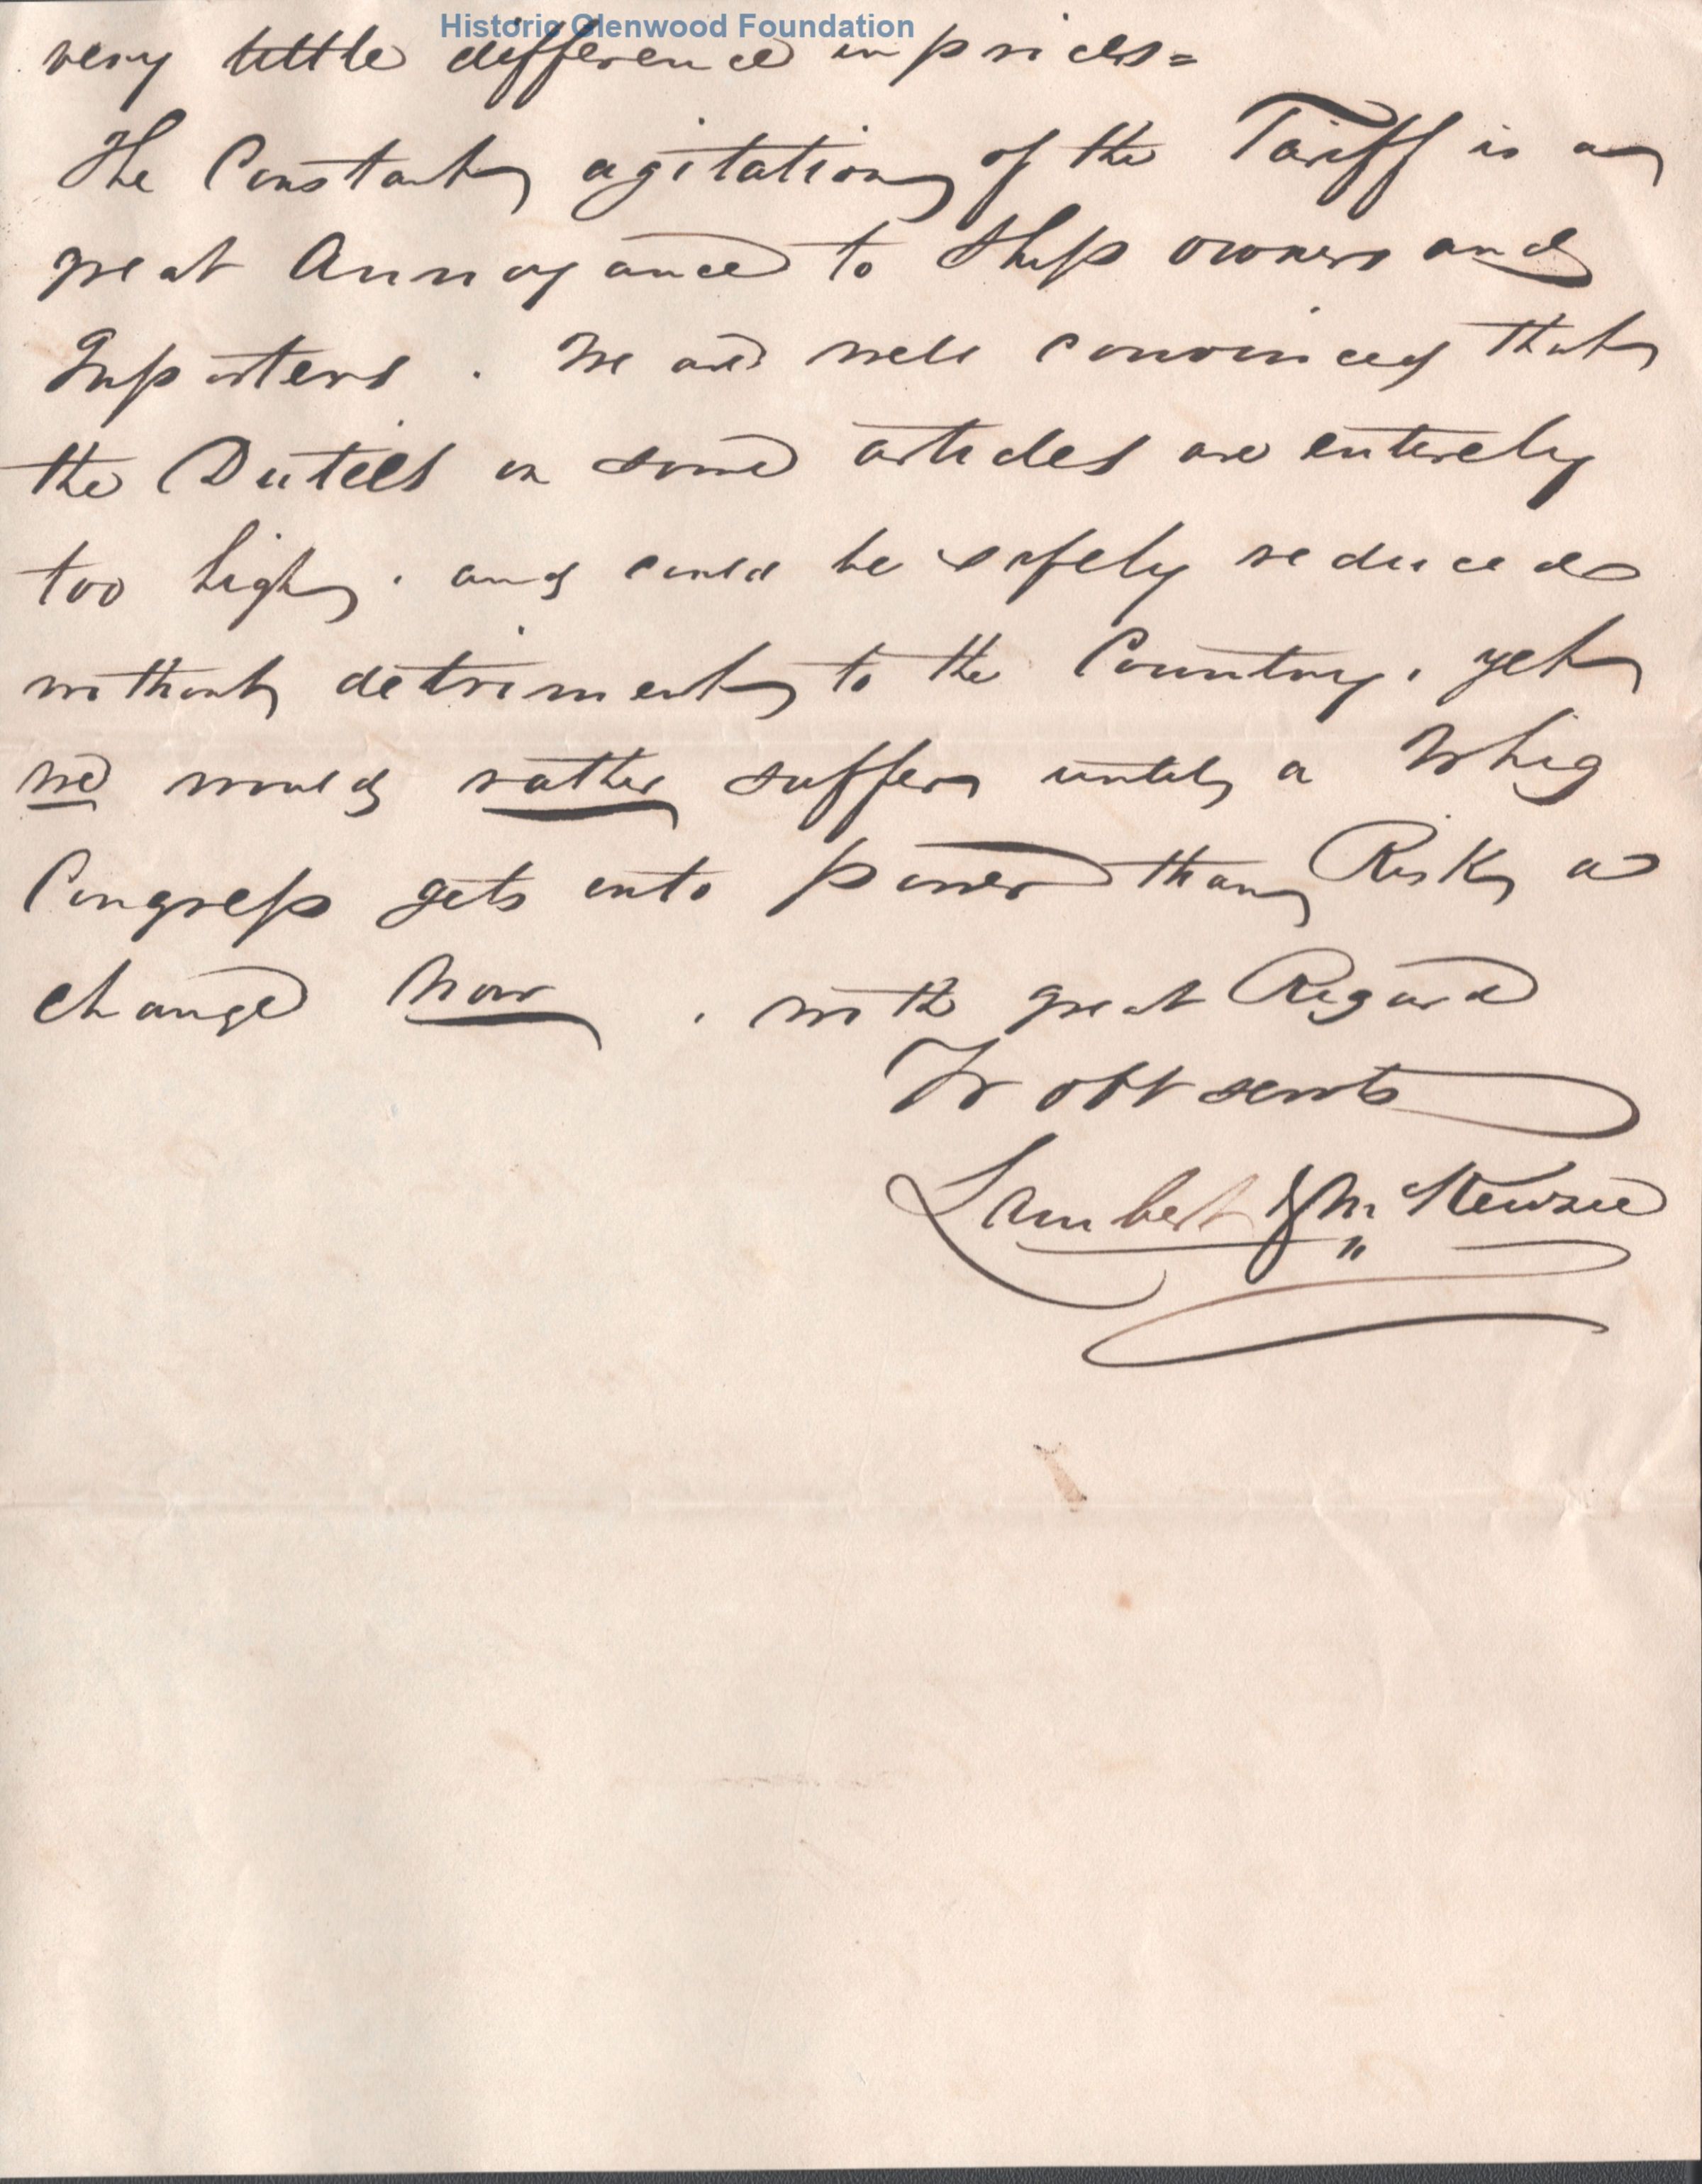 Historic Glenwood Foundation
very little difference in prices=
The Constant agitation of the Tariff is a
great Annoyance to Ship owners and
Importers . We are well convinced that
the Duties on some articles are entirely
too high, and could be safely reduced
without detriment to the Country, yet
we would rather suffer until a Whig
Congress gets into power than Risk a
change Now . with great Regard
Yr obt servts
Lambert & McKenzie